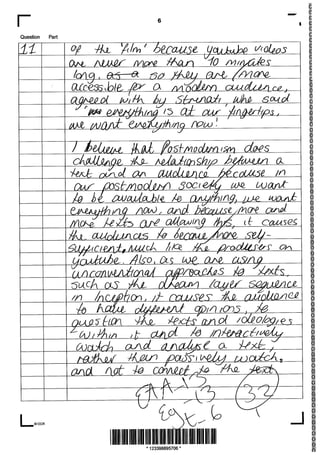 6
Question Part
11
of the 'film' because youtube videos
are never more than 10 minutes
long, as a so they are more
accessible for a modern audience,
agreed with by Strinati, who said
'we everything is at our fingertips,
we want everything now'.
I believe that Postmodernism does
challenge the relationship between a
text and an audience because in
our postmodern society we want
to be available to anything, we want
everything now, and because more and
more texts are allowing this, it causes
the audiences to become more self-
sufficient, much like the producers on
youtube. Also, as we are using
unconventional approaches to texts,
such as the dream layer sequence
in Inception, it causes the audience
to have different opinions, to
question the texts and ideologies
within it and to interactively
watch and analyse a text,
rather than passively watch,
and not to connect to the text.
EAA-13
Eg-13
T-6
32
* 1233988957 06 *